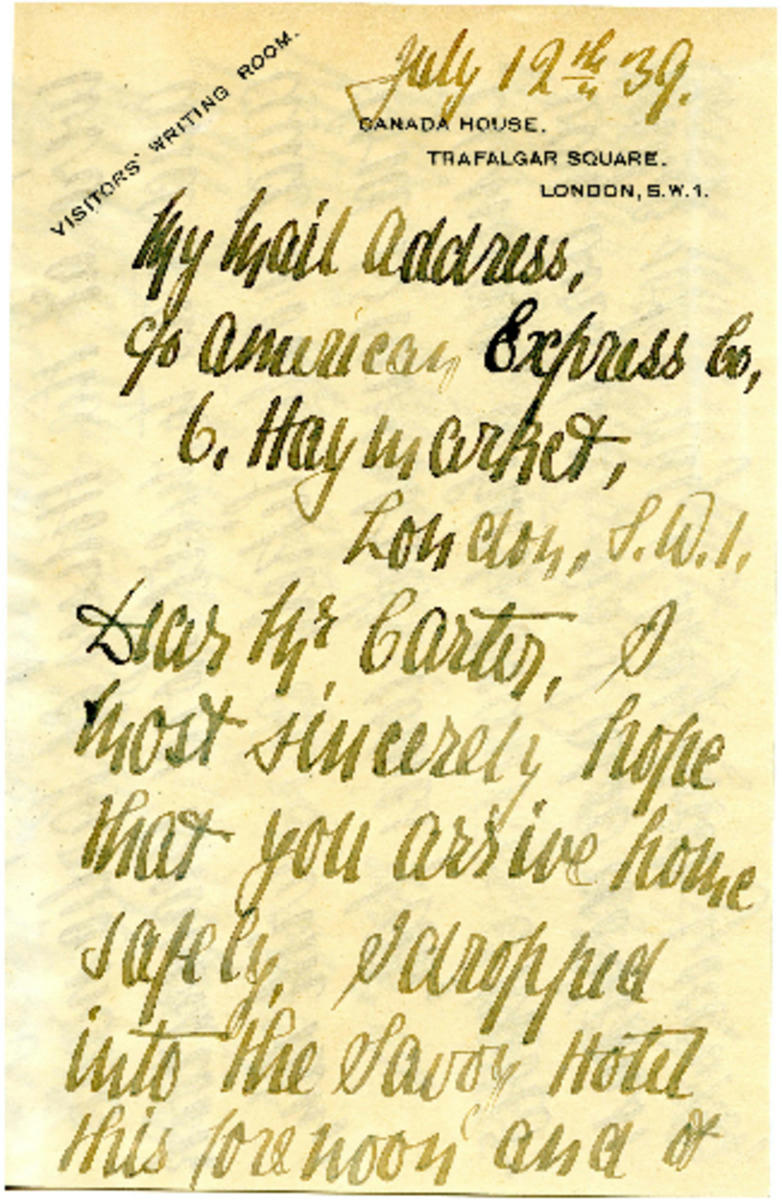 VISITORS' WRITING ROOM.
July 12th 39.
CANADA HOUSE.
TRAFALGAR SQUARE.
LONDON, S.W.1.
My Mail Address,
c/o American Express Co,
6. Haymarket,
London, S.W.1.
Dear Mr Carter, I
most sincerely hope
that you arrive home
safely, I dropped
into the Savoy Hotel
this forenoon and